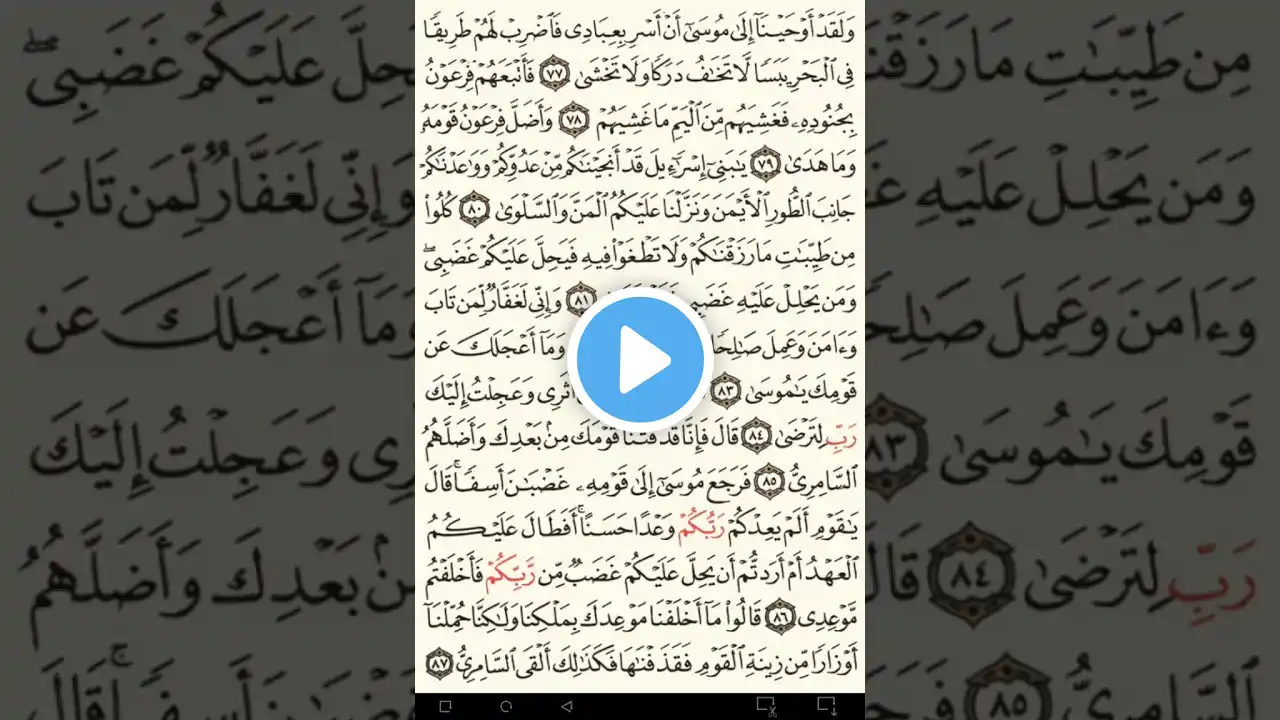 وَلَقَدْ أَوْحَيْنَآ إِلَىٰ مُوسَىٰٓ أَنْ أَسْرِ بِعِبَادِى فَٱضْرِبْ لَهُمْ طَرِيقًا
فِى ٱلْبَحْرِ يَبَسًا لَّا تَخَٰفُ دَرَكًا وَلَا تَخْشَىٰ ٧٧ فَأَتْبَعَهُمْ فِرْعَوْنُ
بِجُنُودِهِۦ فَغَشِيَهُم مِّنَ ٱلْيَمِّ مَا غَشِيَهُمْ ٧٨ وَأَضَلَّ فِرْعَوْنُ قَوْمَهُۥ
وَمَا هَدَىٰ ٧٩ يَٰبَنِىٓ إِسْرَٰٓءِيلَ قَدْ أَنجَيْنَٰكُم مِّنْ عَدُوِّكُمْ وَوَٰعَدْنَٰكُمْ
جَانِبَ ٱلطُّورِ ٱلْأَيْمَنَ وَنَزَّلْنَا عَلَيْكُمُ ٱلْمَنَّ وَٱلسَّلْوَىٰ ٨٠ كُلُوا۟
مِن طَيِّبَٰتِ مَا رَزَقْنَٰكُمْ وَلَا تَطْغَوْا۟ فِيهِ فَيَحِلَّ عَلَيْكُمْ غَضَبِى ۖ
وَمَن يَحْلِلْ عَلَيْهِ غَضَبِى ٨١ وَإِنِّى لَغَفَّارٌ لِّمَن تَابَ
وَءَامَنَ وَعَمِلَ وَمَآ أَعْجَلَكَ عَن
قَوْمِكَ يَٰمُوسَىٰ ٨٣ وَعَجِلْتُ إِلَيْكَ
رَبِّ لِتَرْضَىٰ ٨٤ قَالَ فَإِنَّا قَدْ فَتَنَّا قَوْمَكَ مِنۢ بَعْدِكَ وَأَضَلَّهُمُ
ٱلسَّامِرِىُّ ٨٥ فَرَجَعَ مُوسَىٰٓ إِلَىٰ قَوْمِهِۦ غَضْبَٰنَ أَسِفًا ۚ قَالَ
يَٰقَوْمِ أَلَمْ يَعِدْكُمْ رَبُّكُمْ وَعْدًا حَسَنًا ۚ أَفَطَالَ عَلَيْكُمُ
ٱلْعَهْدُ أَمْ أَرَدتُّمْ أَن يَحِلَّ عَلَيْكُمْ غَضَبٌ مِّن رَّبِّكُمْ فَأَخْلَفْتُم
مَّوْعِدِى ٨٦ قَالُوا۟ مَآ أَخْلَفْنَا مَوْعِدَكَ بِمَلْكِنَا وَلَٰكِنَّا حُمِّلْنَآ
أَوْزَارًا مِّن زِينَةِ ٱلْقَوْمِ فَقَذَفْنَٰهَا فَكَذَٰلِكَ أَلْقَى ٱلسَّامِرِىُّ ٨٧